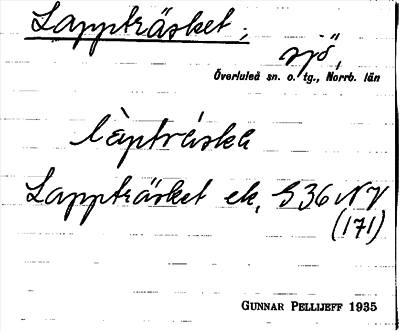 Lappträsket;
sjö,
Överluleå sn. o. tg., Norrb. län
làptrǻska
Lappträsket ek. S 36 NV
(171)
GUNNAR PELLIJEFF 1935